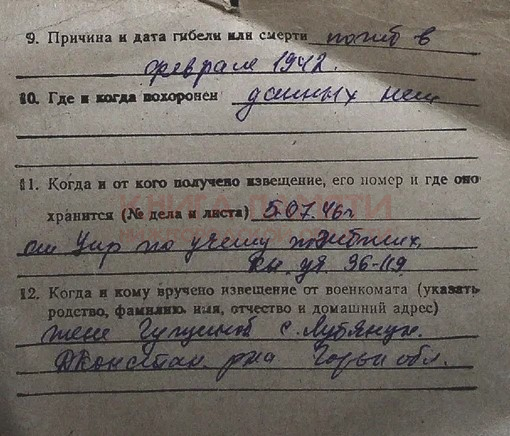 9. Причина и дата гибели или смерти погиб в
феврале 1942.
10. Где и когда похоронен данных нет
11. Когда и от кого получено извещение, его номер и где оно
хранится (№ дела и листа) 5.07.46г
от Упр по учету погибших,
вх. уя 96-119
12. Когда и кому вручено извещение от военкомата (указать
родство, фамилию, имя, отчество и домашний адрес)
жене с.
Д Констан. р-на Горьк обл.